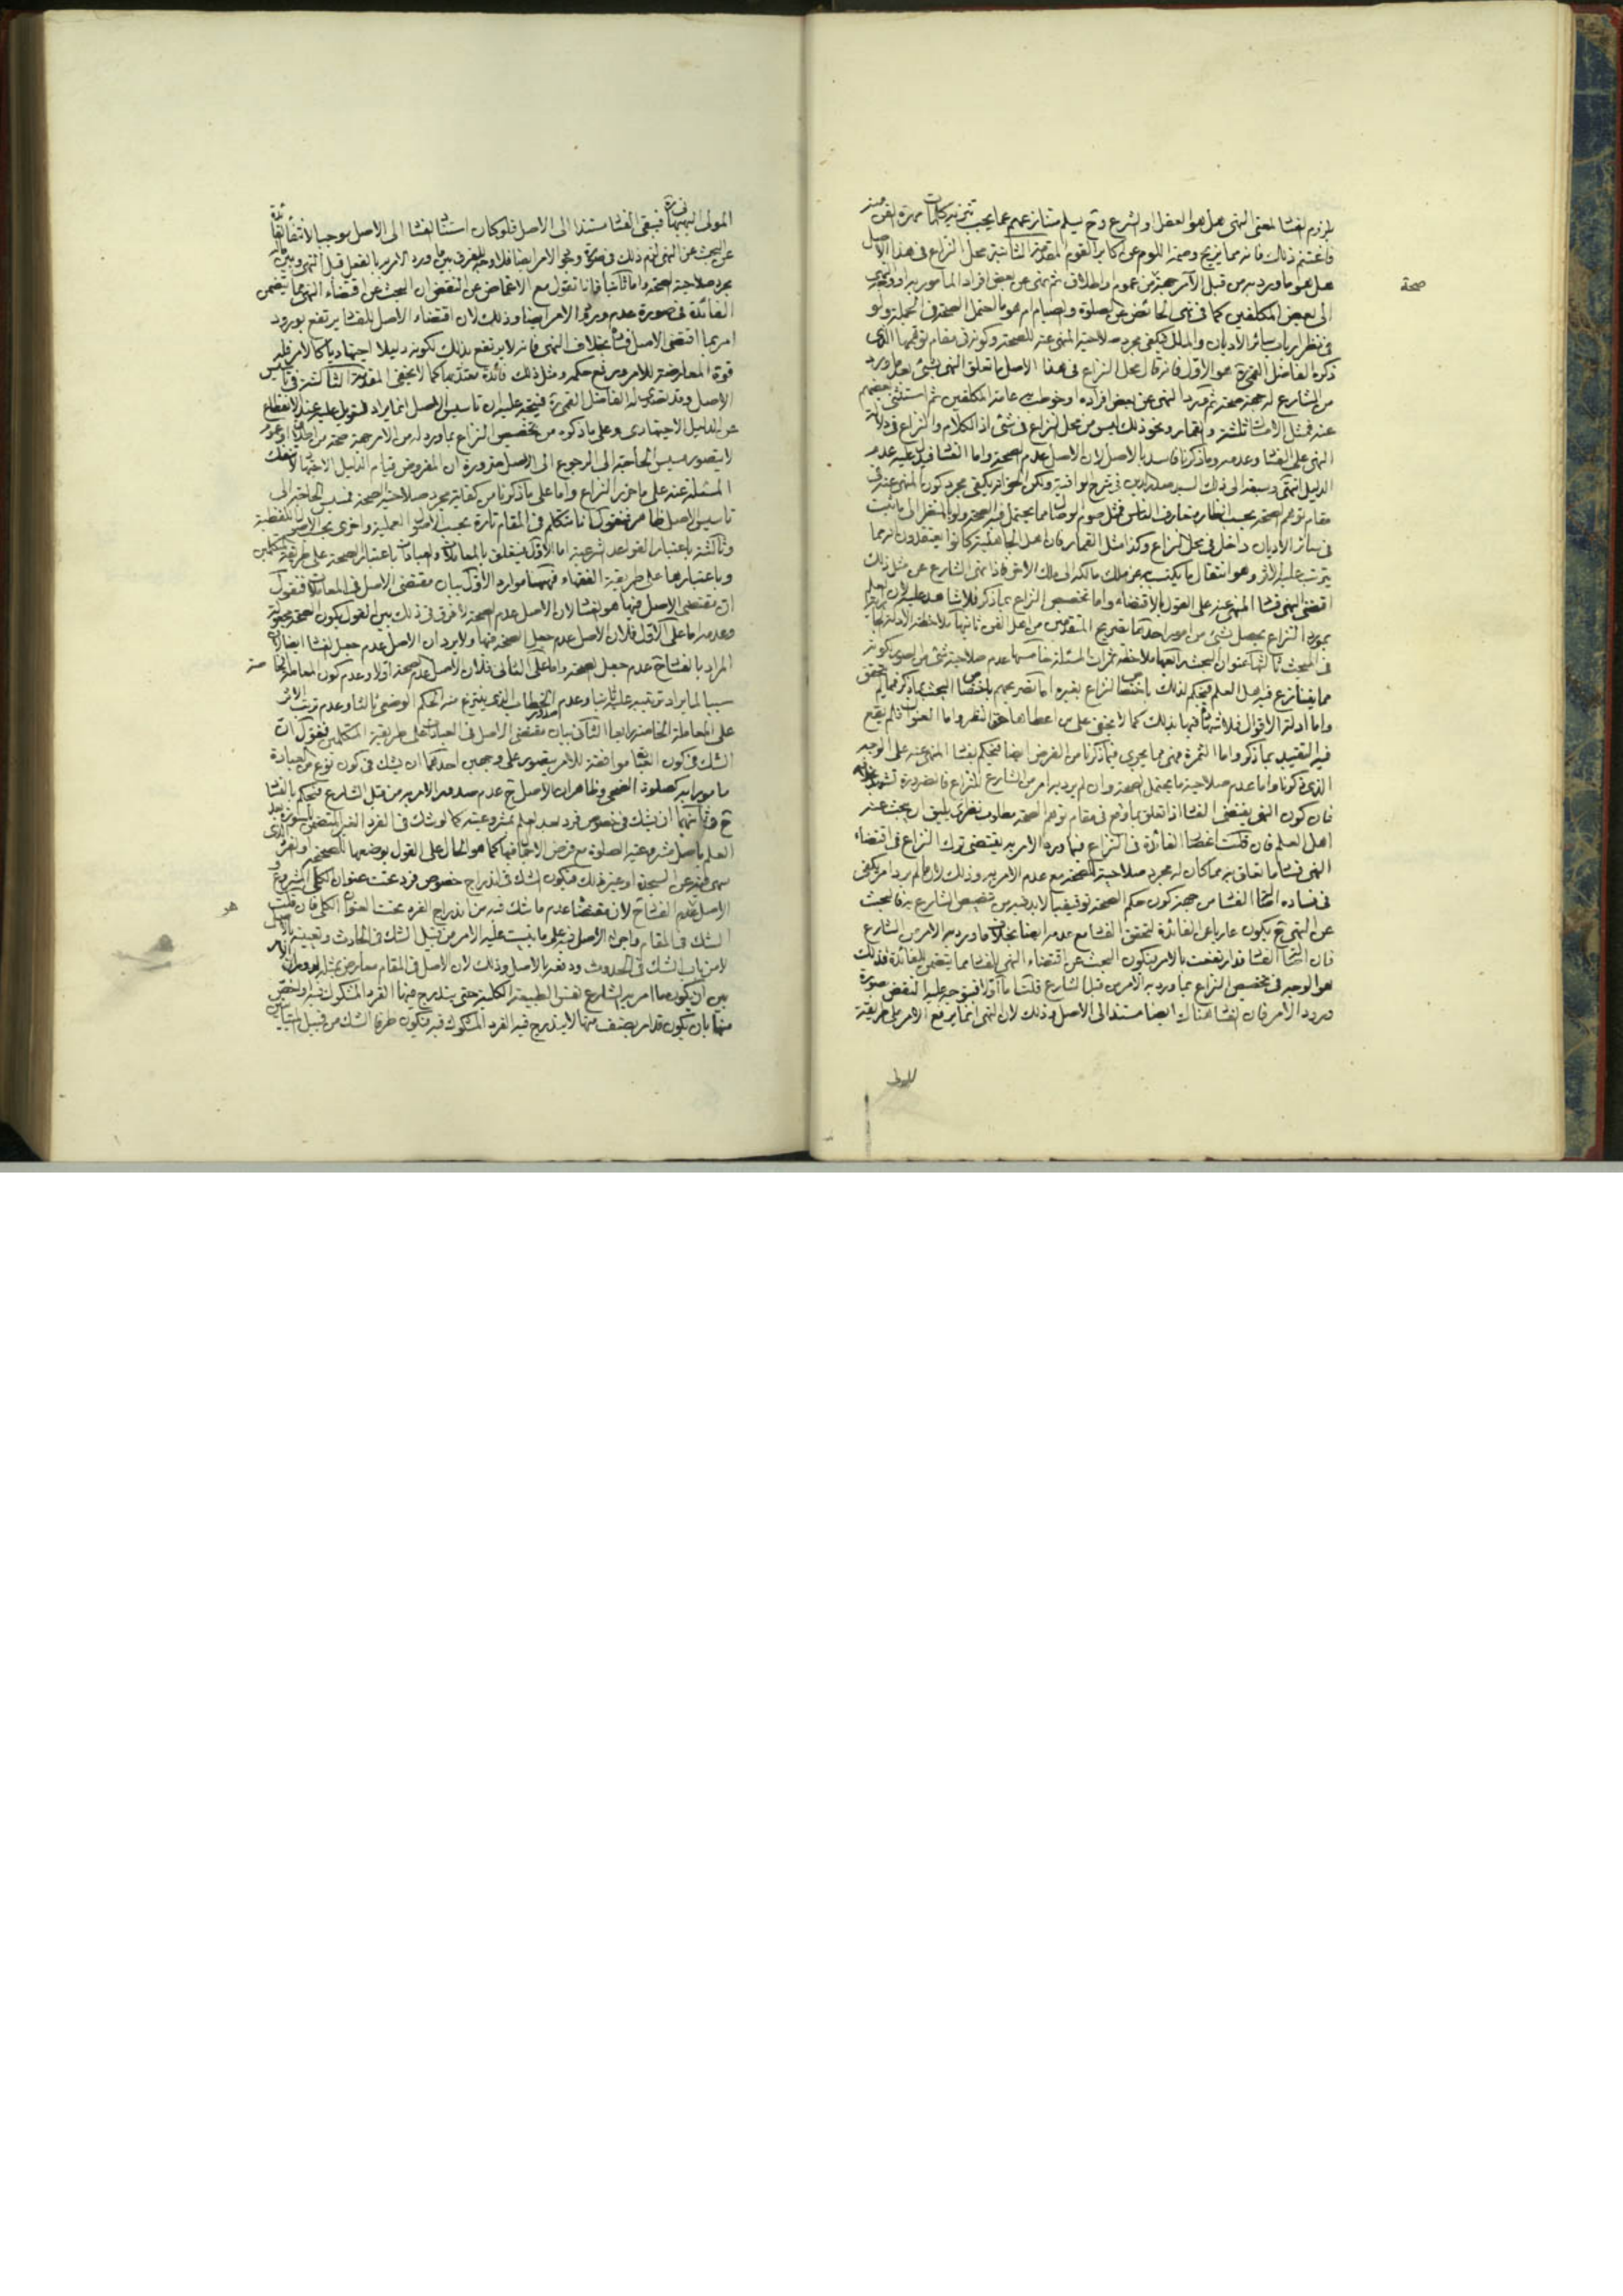 فاغتنم ذلك فانه مما يزيح وصمة اللوم عن اكابر القوم المقدمة الثانية محل النزاع في هذا الاصل
هل هو ما ورد به من قبل الآمر جهة من عموم او اطلاق ثم نهى عن بعض افراد المأمور به او
صحة
الى بعض المكلفين كما في نهى الحائض عن الصلوة والصيام ام هو ما يحتمل الصحة في الجملة ولو
في نظر ارباب سائر الاديان والملل فيكفى مجرد صلاحية المنهى عنه للصحة وكونه في مقام توهمها الذى
ذكره الفاضل القمى ره هو الاول فانه قال محل النزاع في هذا الاصل ما تعلق النهى بشئ بعد ما ورد
من الشارع له جهة صحة ثم ورد النهى عن بعض افراده او خوطب به عامة المكلفين ثم استثنى بعضهم
عنه فمثل الامساك ثلثة والقمار ونحو ذلك ليس من محل النزاع في شئ اذ الكلام والنزاع في دلالة
النهى على الفساد وعدمه وما ذكرنا فاسد بالاصل لان الاصل عدم الصحة واما الفساد فيدل عليه عدم
الدليل انتهى وسبقه الى ذلك السيد صدر الدين في شرح الوافية ولكن الحق انه يكفى مجرد كون المنهى عنه في
مقام توهم الصحة بحسب انظار متعارف الناس فمثل صوم الوصال مما يحتمل فيه الصحة ولو بالنظر الى ما يثبت
في سائر الاديان داخل في محل النزاع وكذا مثل القمار فان اهل الجاهلية كانوا يعتقدون انه مما
يترتب عليه الاثر وهو انتقال ما يكتسب به عن ملك مالكه الى ملك الاخر فاذا نهى الشارع عن مثل ذلك
اقتضى النهى فساد المنهى عنه على القول بالاقتضاء واما تخصيص النزاع بما ذكر فلا شاهد عليه لان العلم
بمورد النزاع يحصل بشئ من امور احدها تصريح المتقدمين من اهل الفن ثانيها ملاحظة الادلة
في المبحث ثالثها عنوان البحث رابعها ملاحظة ثمرات المسئلة خامسها عدم صلاحية شئ من الصور لكونه
مما يتنازع فيه اهل العلم فيحكم لذلك باختصاص النزاع بغيره اما تصريحهم باختصاص البحث بما ذكر فمما لم يتحقق
واما ادلة الاقوال فلا شهادة فيها بذلك كما لا يخفى على من اعطاها حق النظر واما العنوان فلم يقع
فيه التقييد بما ذكر واما الثمرة فهى مما يجرى فيما ذكرنا من الفرض ايضا فيحكم بفساد المنهى عنه على الوجه
الذى ذكرنا واما عدم صلاحية ما يحتمل الصحة وان لم يرد به امر من الشارع للنزاع فالضرورة تشهد بخلافه
فان كون النهى يقتضى الفساد اذا تعلق بما وقع في مقام توهم الصحة مطلب نظرى يليق ان يبحث عنه
اهل العلم فان قلت اختصاص الفائدة في النزاع فيما ورد الامر به يقتضى ترك النزاع في اقتضاء
النهى فساد ما تعلق به مما كان له مجرد صلاحية للصحة مع عدم الامر به وذلك لان ما لم يرد امر يكفى
في فساده اصالة الفساد من جهة كون حكم الصحة توقيفيا لابد فيه من تنصيص الشارع به فالبحث
عن النهى ح يكون عاريا عن الفائدة لتحقق الفساد مع عدمه ايضا بخلاف ما ورد به الامر من الشارع
فان اصالة الفساد قد ارتفعت بالامر فيكون البحث عن اقتضاء النهى للفساد مما يتضمن للفائدة فذلك
هو الوجه في تخصيص النزاع بما ورد به الامر من قبل الشارع قلت اما اولا فيتوجه عليه النقض بصورة
ورود الامر فان الفساد هناك ايضا مستند الى الاصل وذلك لان النهى انما يرفع الامر على طريقة
المولى البهبهانى ره فيبقى الفساد مستندا الى الاصل فلو كان استناد الفساد الى الاصل موجبا لانتفاء فائدة
البحث عن النهى لزم ذلك في صورة ورود الامر ايضا فلا وجه للفرق بين ما ورد الامر به بالفعل قبل النهى وبين ما له
مجرد صلاحية الصحة واما ثانيا فانا نقول مع الاغماض عن النقض ان البحث عن اقتضاء النهى مما يتضمن
الفائدة في صورة عدم ورود الامر ايضا وذلك لان اقتضاء الاصل للفساد يرتفع بورود
امر بما اقتضى الاصل فساده بخلاف النهى فانه لا يرتفع بذلك لكونه دليلا اجتهاديا كالامر فله
قوة المعارضة للامر ورفع حكمه ومثل ذلك فائدة معتد بها كما لا يخفى المقدمة الثالثة في تأسيس
الاصل وقد تصدى له الفاضل القمى ره فيتجه عليه ان تاسيس الاصل انما يراد للتعويل عليه عند الانقطاع
عن الدليل الاجتهادى وعلى ما ذكره من تخصيص النزاع بما ورد له من الامر جهة صحة من اطلاق او عموم
لا يتصور مسيس الحاجة الى الرجوع الى الاصل ضرورة ان المفروض قيام الدليل الاجتهادى لا تنفك
المسئلة عنه على ما حرر النزاع واما على ما ذكرنا من كفاية مجرد صلاحية الصحة فمسيس الحاجة الى
تاسيس الاصل ظاهر فنقول انا نتكلم في المقام تارة بحسب الاصول العملية واخرى بحسب الاصول اللفظية
وثالثة باعتبار القواعد الشرعية اما الاول فيتعلق بالمعاملات والعبادات باعتبار الصحة على طريقة المتكلمين
وباعتبارها على طريقة الفقهاء فههنا موارد الاول بيان مقتضى الاصل في المعاملات فنقول
ان مقتضى الاصل فيها هو الفساد لان الاصل عدم الصحة لا فرق في ذلك بين القول بكون الصحة مجعولة
وعدمه اما على الاول فلان الاصل عدم جعل الصحة فيها ولا يرد ان الاصل عدم جعل الفساد ايضا لان
المراد بالفساد ح عدم جعل الصحة واما على الثانى فلان الاصل عدم الصحة اولا وعدم كون المعاملة الخاصة
سببا لما يراد ترتبه عليها ثانيا وعدم صدور الخطاب الذى ينتزع منه الحكم الوضعى ثالثا وعدم ترتب الاثر
على المعاملة الخاصة رابعا الثانى بيان مقتضى الاصل في العبادات على طريقة المتكلمين فنقول ان
الشك في كون العبادة موافقة للامر يتصور على وجهين احدهما ان يشك في كون نوع من العبادة
مامورا به كصلوة الضحى وظاهر ان الاصل ح عدم صدور الامر به من قبل الشارع فيحكم بالفساد
ح وثانيهما ان يشك في خصوص فرد بعد العلم بمشروعيته كما لو شك في الفرد الغير المتضمن للسورة بعد
العلم باصل مشروعية الصلوة مع فرض الاجمال فيها كما هو الحال على القول بوضعها للصحيح او الفرد الذى
سهى فيه عن السجدة او غير ذلك فيكون الشك في اندراج خصوص فرد تحت عنوان الكلى المشروع و
الاصل عدم الفساد ح لان مقتضاه عدم ما شك فيه من اندراج الفرد تحت العنوان الكلى فان قلت
هو
الشك في المقام واجراء الاصل فيه على ما يثبت عليه الامر من قبيل الشك في الحادث وتعيينه بالاصل
لا من باب الشك في الحدوث ودفعه بالاصل وذلك لان الاصل في المقام معارض بمثله لدوران الامر
بين ان يكون ما امر به الشارع نفس الطبيعة الكلية حتى يندرج فيها الفرد المشكوك فيه او اخص
منها بان يكون قد امر بصنف منها لا يندرج فيه الفرد المشكوك فيه فيكون طرفا الشك من قبيل المتباينين